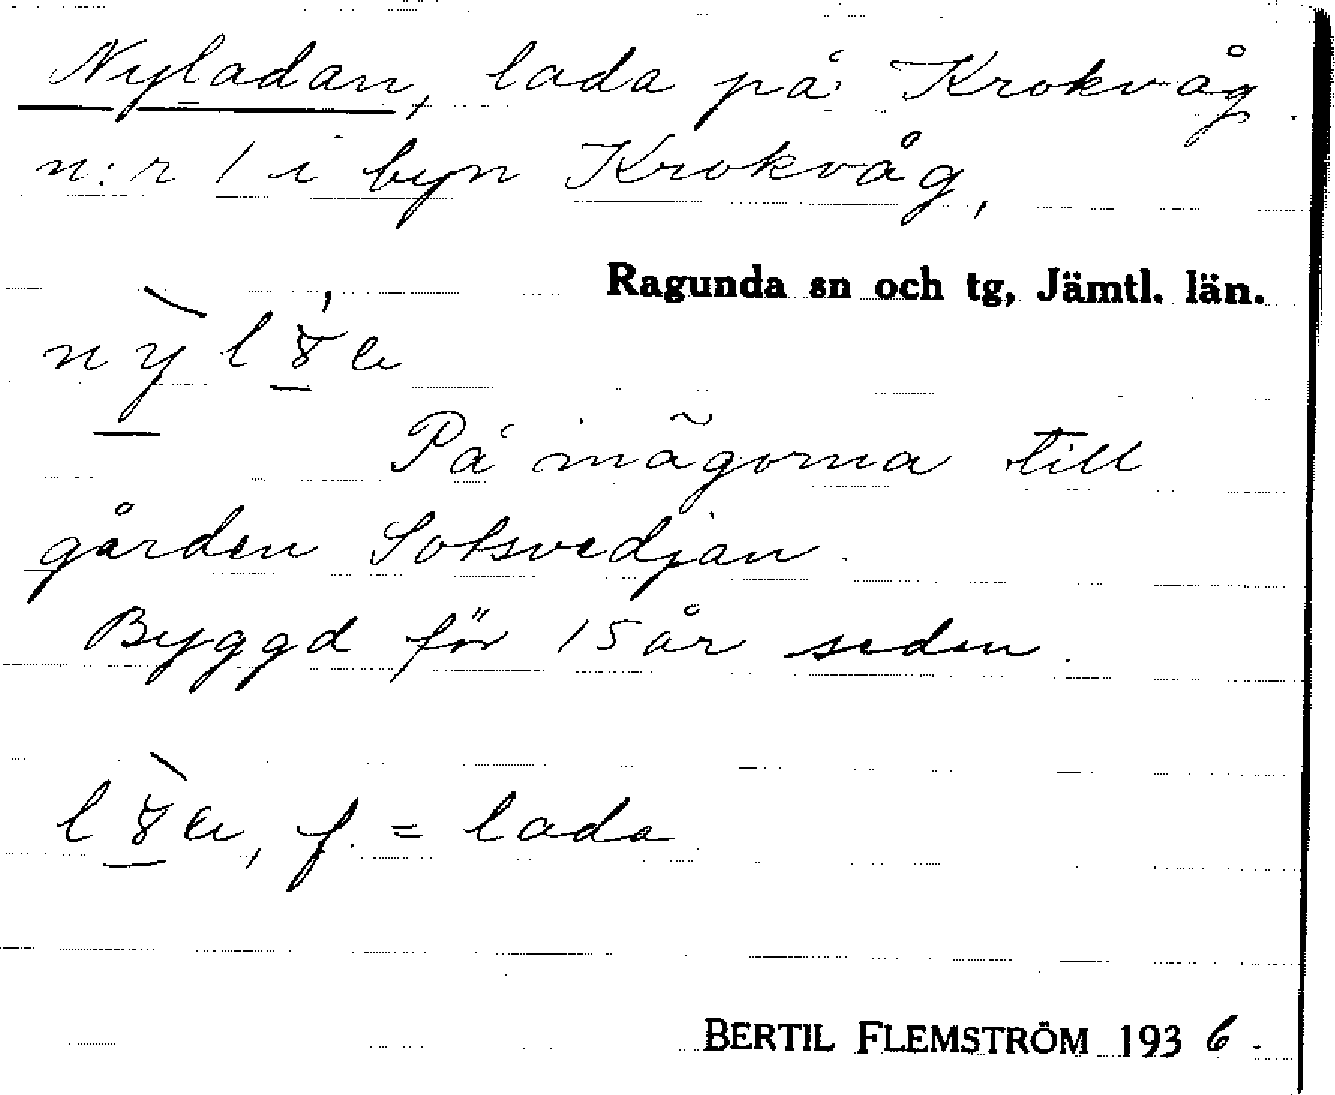 Nyladan, lada på Krokvåg
n:r 1 i byn Krokvåg,
Ragunda sn och tg, Jämtl. län.
På inägorna till
gården Sotsvedjan.
Byggd för 15 år sedan.
f. = lada
BERTIL FLEMSTRÖM 1936